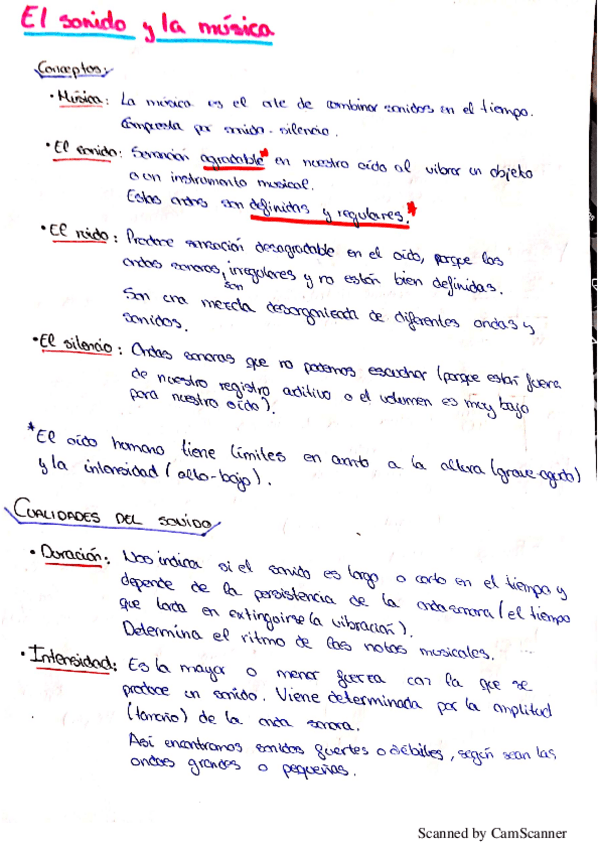 El sonido y la música
Conceptos:
· Música: La música es el arte de combinar sonidos en el tiempo.
Compuesta por sonido - silencio.
· El sonido: Sensación agradable* en nuestro oído al vibrar un objeto
o un instrumento musical.
Estas ondas son definidas y regulares.*
· El ruido: Produce sensación desagradable en el oído, porque las
ondas sonoras, son irregulares y no están bien definidas.
Son una mezcla desorganizada de diferentes ondas y
sonidos.
· El silencio: Ondas sonoras que no podemos escuchar (porque están fuera
de nuestro registro auditivo o el volumen es muy bajo
para nuestro oído).
*El oído humano tiene límites en cuanto a la altura (grave-agudo)
y la intensidad (alto-bajo).
CUALIDADES DEL SONIDO
· Duración: Nos indica si el sonido es largo o corto en el tiempo y
depende de la persistencia de la onda sonora (el tiempo
que tarda en extinguirse la vibración).
Determina el ritmo de las notas musicales.
· Intensidad: Es la mayor o menor fuerza con la que se
produce un sonido. Viene determinada por la amplitud
(tamaño) de la onda sonora.
Así encontramos sonidos fuertes o débiles, según sean las
ondas grandes o pequeñas.
Scanned by CamScanner